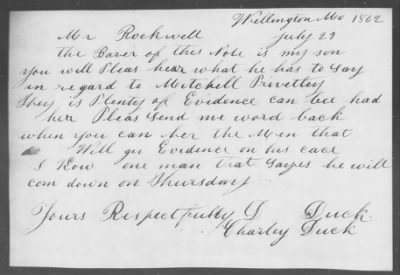 Wellington Mo 1862
Mr Rockwell July 29
the Barer of this Note is my son
you will Pleas hear what he has to Say
in regard to Mitchell Privettey
They is Plenty of Evidence can bee had
her Pleas Send me word back
when you can her the Men that
Will giv Evidence on his case
I Know one man that Sayes he will
com down on Thursday
Yours Respectfully D Duck
Charley Duck